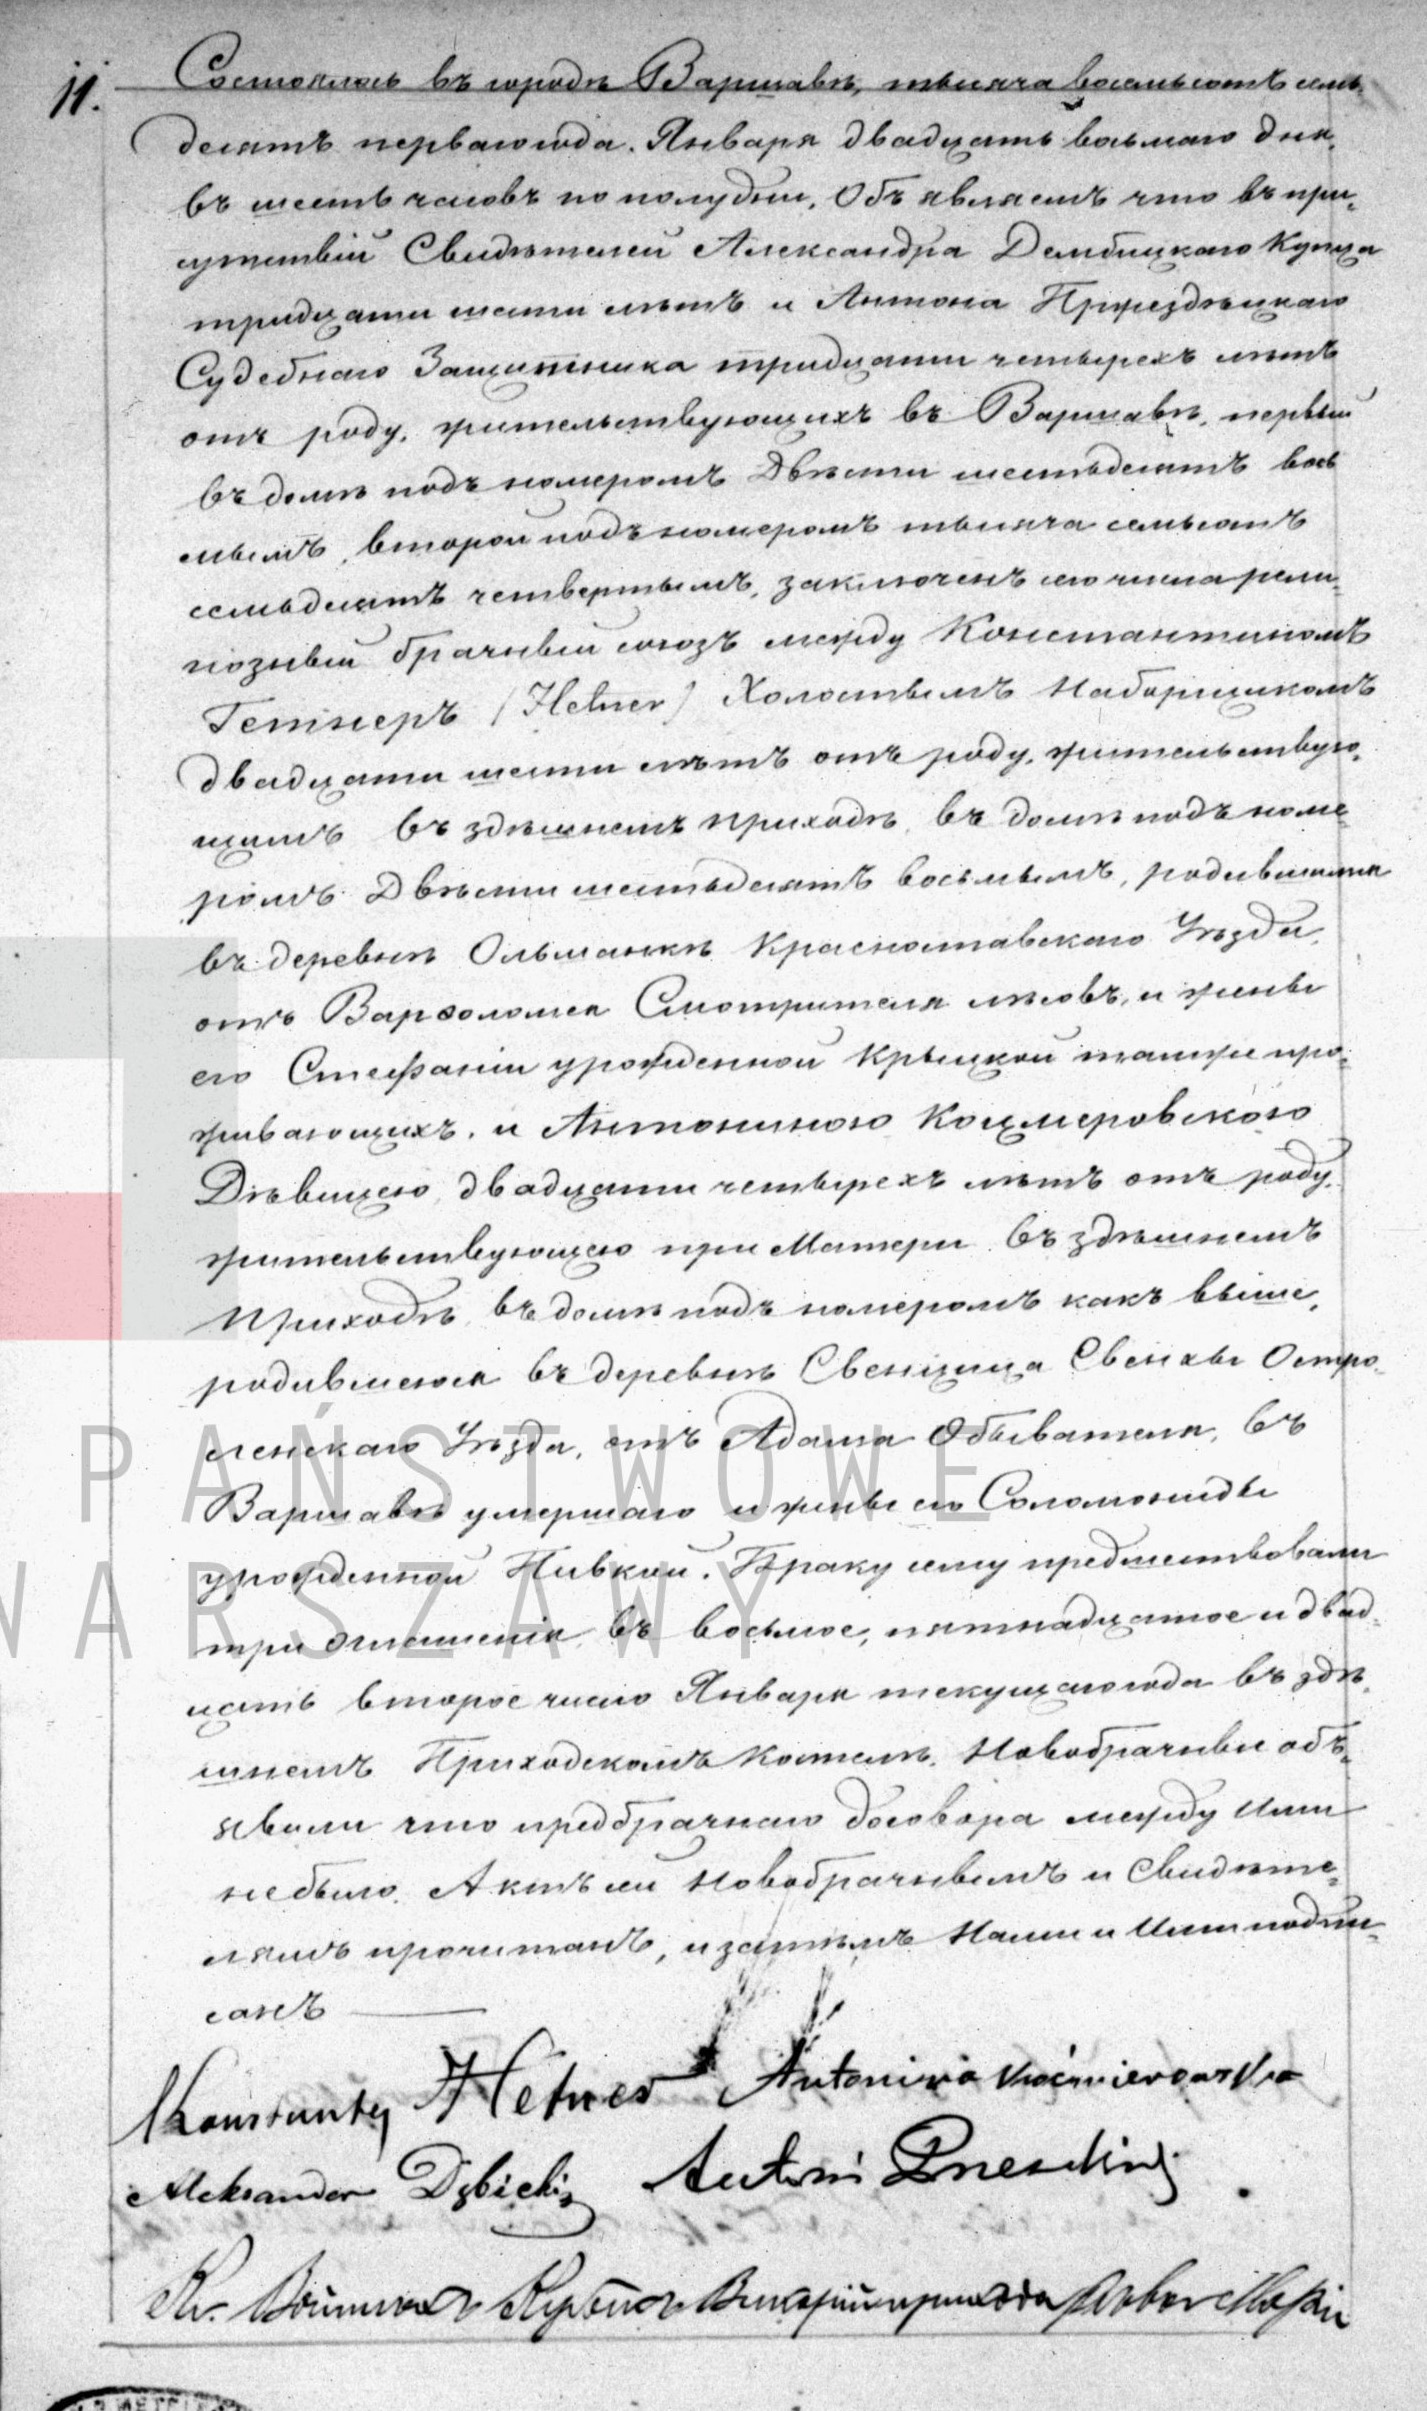 11. Состоялось въ городѣ Варшавѣ, тысяча восемьсотъ семь-
десятъ перваго года. Января двадцать восьмаго дня,
въ шесть часовъ по полудни. Объявляемъ что въ при-
сутствіи Свидѣтелей Александра Дембицкаго Купца
тридцати шести лѣтъ и Антона
Судебнаго Защитника тридцати четырехъ лѣтъ
отъ роду, жительствующихъ въ Варшавѣ, первый
въ домѣ подъ номеромъ Двѣсти шестьдесятъ вось
мымъ, второй подъ номеромъ тысяча семьсотъ
семьдесятъ четвертымъ, заключенъ сего числа рели-
гіозный брачный союзъ между Константиномъ
Гетнеръ (Hetner) Холостымъ Наборщикомъ
двадцати шести лѣтъ отъ роду, жительствую-
щимъ въ здѣшнемъ приходѣ, въ домѣ подъ номе-
ромъ Двѣсти шестьдесятъ восьмымъ, родившимся
въ деревнѣ Ольшанкѣ Красноставскаго Уѣзда,
отъ Варѳоломея Смотрителя лѣсовъ, и жены
его Стефаніи урожденной Крыцкой тамже про-
живающихъ, и Антониною Коцмеровскою
Дѣвицею, двадцати четырехъ лѣтъ отъ роду,
жительствующею при Матери въ здѣшнемъ
Приходѣ, въ домѣ подъ номеромъ какъ выше,
родившеюся въ деревнѣ Остро-
ленскаго Уѣзда, отъ Адама Обывателя, въ
Варшавѣ умершаго и жены его Соломониды
урожденной Пивкой. Браку сему предшествовали
три оглашенія, въ восьмое, пятнадцатое и двад-
цать второе число Января текущаго года въ здѣ-
шнемъ Приходскомъ Костелѣ. Новобрачные объ-
явили что предбрачнаго договора между Ими
небыло. Актъ сей Новобрачнымъ и Свидѣте-
лямъ прочитанъ, и затѣмъ Нами и Ими подпи-
санъ
Konstanty Hetner Antonina Koćmierowska
Aleksander Dębicki Antoni
Кс. Викарій прихода
PAŃSTWOWE
WARSZAWY